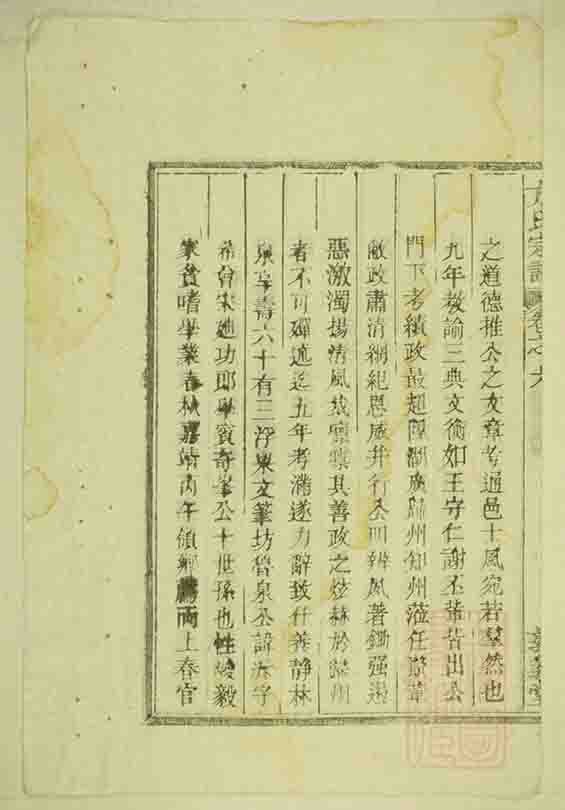 之道德推公之文章考通邑士風宛若翠然也
九年教諭三典文衡如王守仁謝丕輩皆出公
門下考績政最超陞湖廣歸州知州蒞任釐革
敝政肅清綱紀恩威并行公明辨風著鋤强遏
惡激濁揚清風裁凜凜其善政之炫赫於歸州
者不可殫述迄五年考滿遂力辭致仕養靜林
泉享壽六十有三浮梁文筆坊晉泉公諱 字
希曾宋迪功郎學賓奇峯公十世孫也性嚴毅
家貧嗜學業春秋嘉靖丙午領鄉薦兩上春官
氏宗譜 卷之六